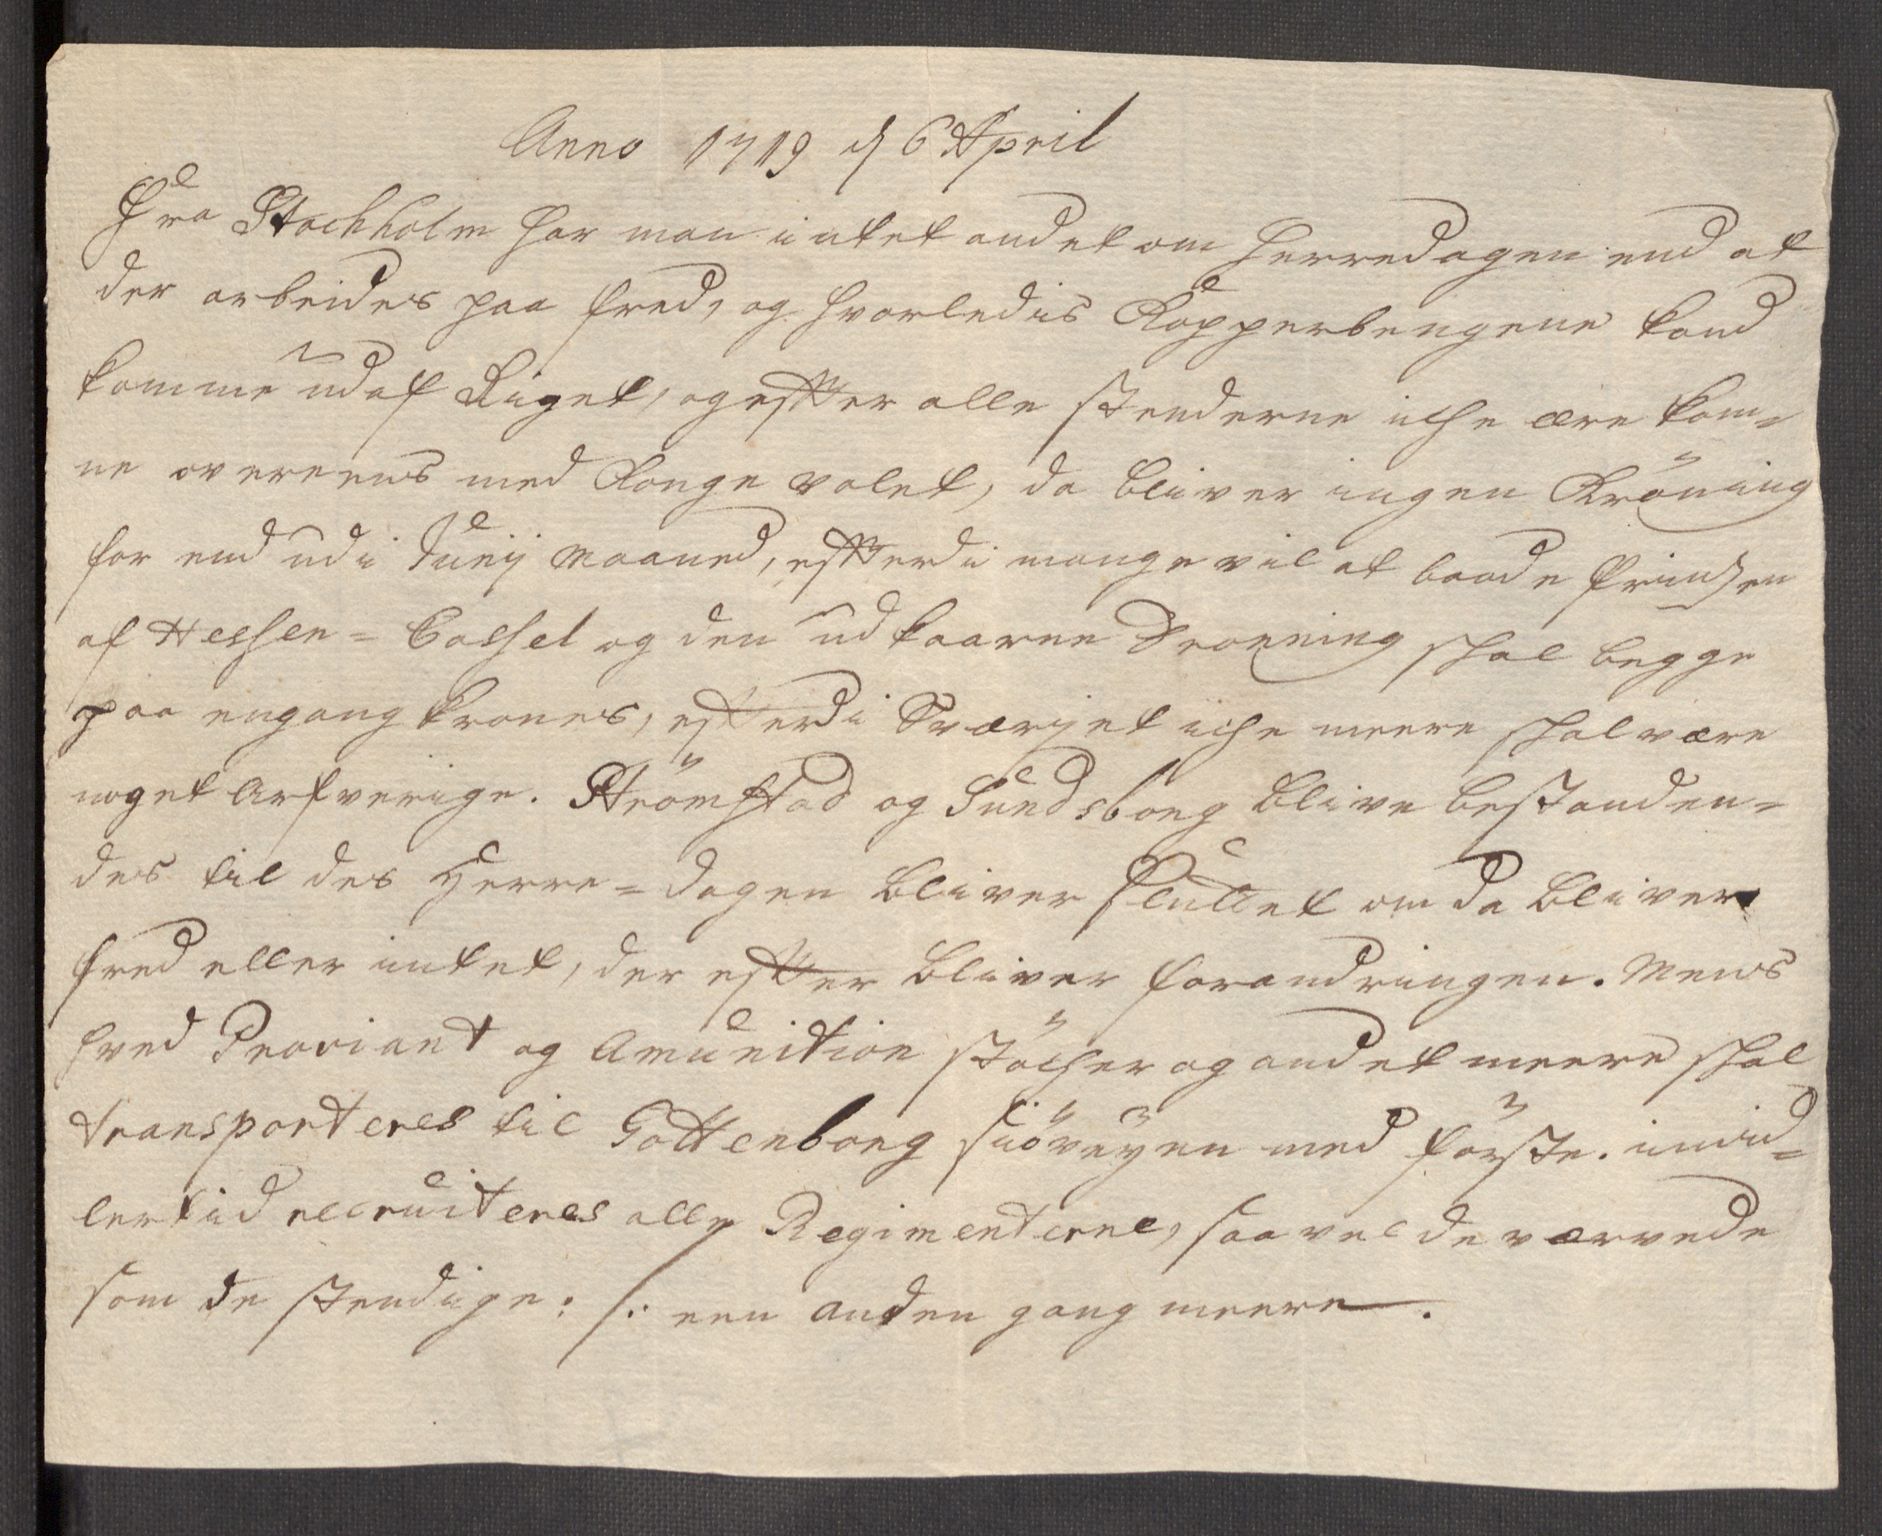 Anno 1719 d 6 April
Fra Stockholm har man intet andet om Herredagen end at
der arbeides paa fred, og hvorledis Kopperpengene kand
komme ud af Riget, og efter alle stenderne iche ere kom-
ne overeens med Konge valet, da bliver ingen Kröning
for end ud i Junij Maaned, efterdi mange vil at baade Prinsen
af Hessen-Cassel og den udkaarne Dronning skal begge
paa engang krones, efterdi Sværjet iche meere skal være
noget Arfverige. Strömstad og Sundsborg blive bestanden-
des til des Herre-dagen bliver sluttet om da bliver
fred eller intet, der efter bliver forandringen. Mens
hved Proviant og Amunition stöcher og andet meere skal
transporteres til Gottenborg siöveyen med förste. imid-
lertid recruiteres alle Regimenterne, saa vel de værvede
som de stendige: /: een anden gang meere.